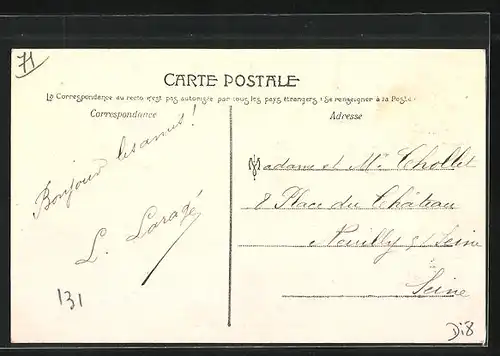 71
CARTE POSTALE
La Correspondance au recto n'est pas autorisée par tous les pays étrangers (Se renseigner à la Poste)
Correspondance
Adresse
Bonjour les amis!
L.
Madame et Mr Chollet
8 Place du Château
Neuilly s/ Seine
Seine
131
Di8